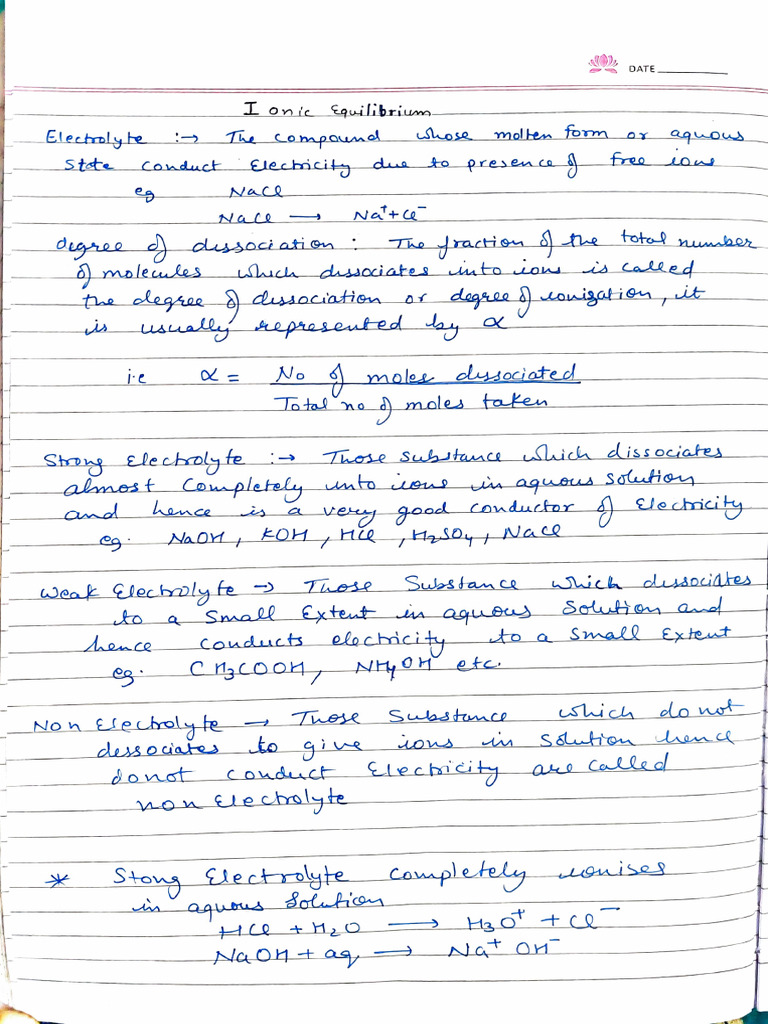 DATE
Ionic Equilibrium
Electrolyte :→ The compound whose molten form or aquous
state conduct Electricity due to presence of free ions
eg NaCl
NaCl ⟶ Na⁺+Cl⁻
degree of dissociation : The fraction of the total number
of molecules which dissociates into ions is called
the degree of dissociation or degree of ionization, it
is usually represented by α
i.e α = No of moles dissociated
Total no of moles taken
Strong Electrolyte :→ Those substance which dissociates
almost completely into ions in aquous solution
and hence is a very good conductor of Electricity
eg. NaOH, KOH, HCl, H₂SO₄, NaCl
Weak Electrolyte → Those Substance which dissociates
to a Small Extent in aquous Solution and
hence conducts electricity to a small Extent
eg. CH₃COOH, NH₄OH etc.
Non Electrolyte → Those Substance which do not
dessociates to give ions in solution hence
donot conduct Electricity are called
non Electrolyte
* Stong Electrolyte completely ionises
in aquous Solution
HCl + H₂O ⟶ H₃O⁺ + Cl⁻
NaOH + aq ⟶ Na⁺ OH⁻